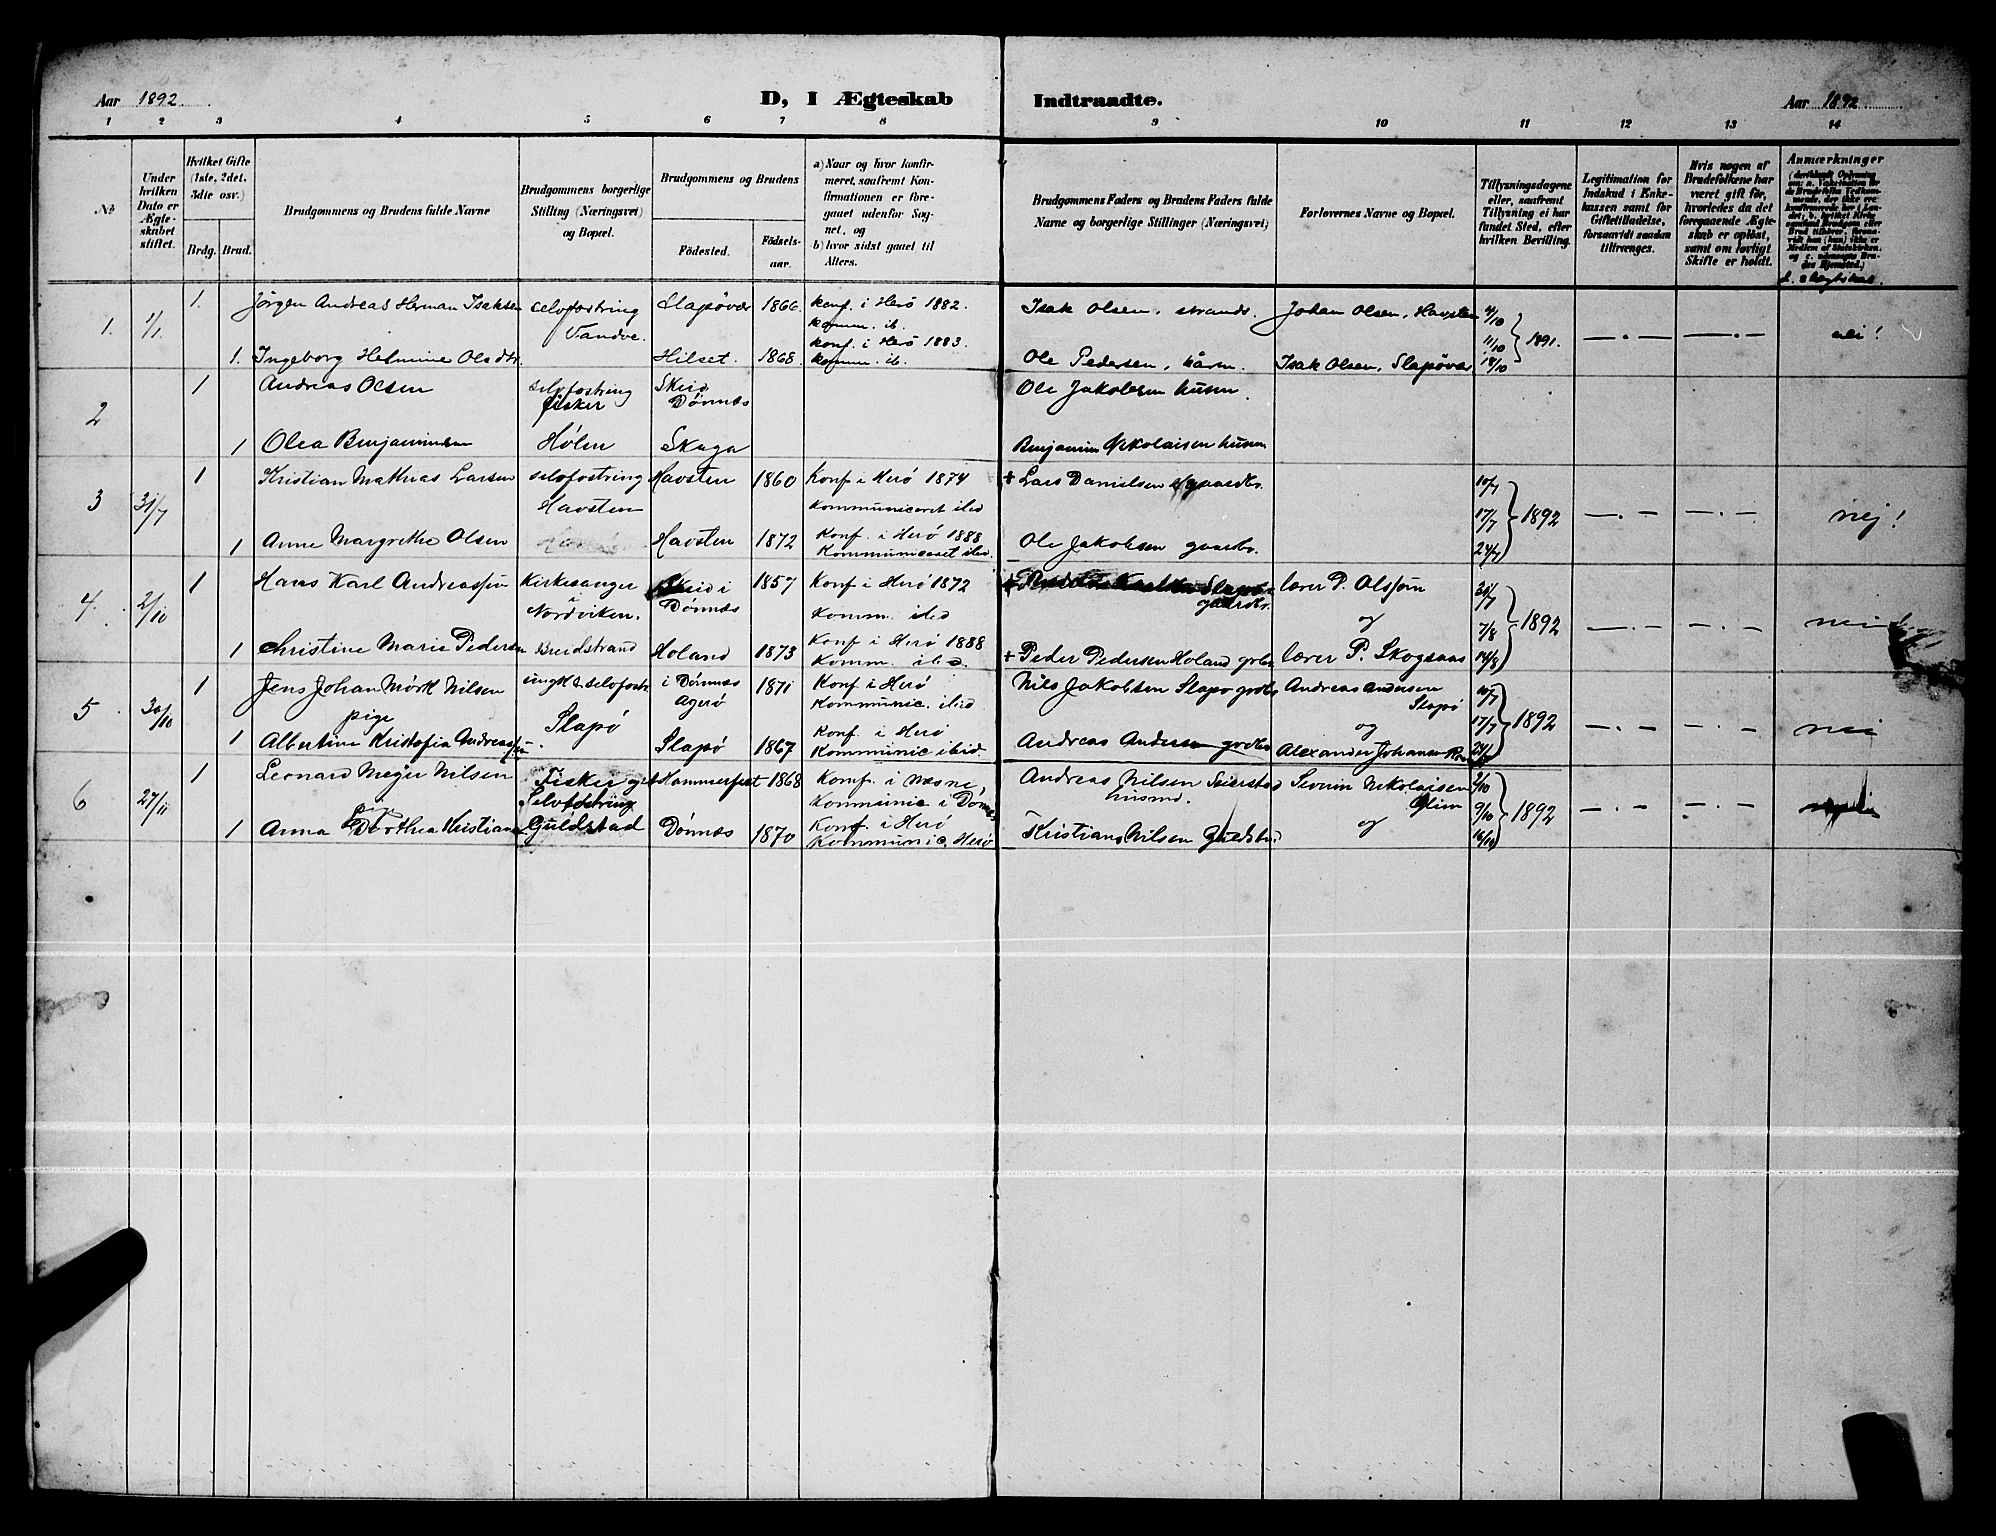 Aar 1892.
D, I Ægteskab
Indtraadte.
Aar 1892
1 2 3 4 5 6 7 8 9 10 11 12 13 14
№
Under hvilken Dato er Ægteskabet stiftet.
Hvilket Gifte (1ste, 2det, 3die osv.)
Brdg. Brud.
Brudgommens og Brudens fulde Navne
Brudgommens borgerlige Stilling (Næringsvei) og Bopæl.
Brudgommens og Brudens
Födested.
Födselsaar.
a) Naar og hvor konfirmeret, saafremt Konfirmationen er foregaaet udenfor Sognet, og
b) hvor sidst gaaet til Alters.
Brudgommens Faders og Brudens Faders fulde Navne og borgerlige Stillinger (Næringsvei)
Forlovernes Navne og Bopæl.
Tillysningsdagene eller, saafremt Tillysning ei har fundet Sted, efter hvilken Bevilling.
Legitimation for Indskud i Enkekassen samt for Giftetilladelse, forsaavidt saadan tiltrænges.
Hvis nogen af Brudefolkene har været gift för, hvorledes da det foregaaende Ægteskab er oplöst, samt om lovligt Skifte er holdt.
Anmærkninger
1. 1/1 1. Jörgen Andreas Herman Isaksen selvfostring Slapövær 1866. konf. i Herö 1882. Isak Olsen, strands. Johan Olsen, Havsten 4/10
Tandve. komm. ib. 11/10 1891. — . — — . — nei!
1. Ingeborg Helmine Olsdtr. Hilset. 1868. konf. i Herö 1883. komm. ib. Ole Pedersen, kårm. Isak Olsen, Slapövær 18/10
2 1 Andreas Olsen selvfostring fisker Skeid Dönnæs Ole Jakobsen husm.
1 Olea Benjaminsen Hölen Skaga Benjamin Nikolaisen husm
3 31/7 1 Kristian Mathias Larsen selvfostring Havsten 1860 Konf i Herö 1874 + Lars Danielsen gaardbr. 10/7
Havsten Kommuniceret ibid 17/7 1892 — . — — . — nej!
1 Anne Margrethe Olsen Havsten 1872 Konf. i Herö 1888 Kommuniceret ibid. Ole Jakobsen gaardbr. 24/7
4. 2/10 1 Hans Karl Andreassen Kirkesanger Skeid i Dönnæs 1857 Konf i Herö 1872 gaardbr. lærer P. Olssön 31/7
i Nordviken. Komm. ibid og 7/8 1892 — . — — . — nei
1 Christine Marie Pedersen Breidstrand Holand 1873 Konf i Herö 1888 Komm. ibid. + Peder Pedersen Holand grbr lærer P. Skogsaas 14/8
5 30/10 1 Jens Johan Mörk Nilsen ungk & selvfostr i Dönnæs Agerö 1871 Konf i Herö Kommunic. ibid Nils Jakobsen Slapö grdbr Andreas Andersen Slapö 10/7
pige Slapö og 17/7 1892 — . — — . — nei
1 Albertine Kristofia Andreassen Slapö 1867 Konf. i Herö Kommunic ibid. Andreas Andersen grdbr Alexander Johansen 24/7
6 27/11 1 Leonard Meyer Nilsen Fisker og Hammerfest 1868 Konf. i Næsne Andreas Nilsen Seierstad husmd. Severin Nikolaisen Glein 2/10
pige Selvfostring Kommunic i Dönnæs og 9/10 1892 — . — — . —
1 Anna Dorthea Kristiansen Guldstad Dönnæs 1870 Konf. i Herö Kommunic. Herö Kristian Nilsen Guldstad 16/10